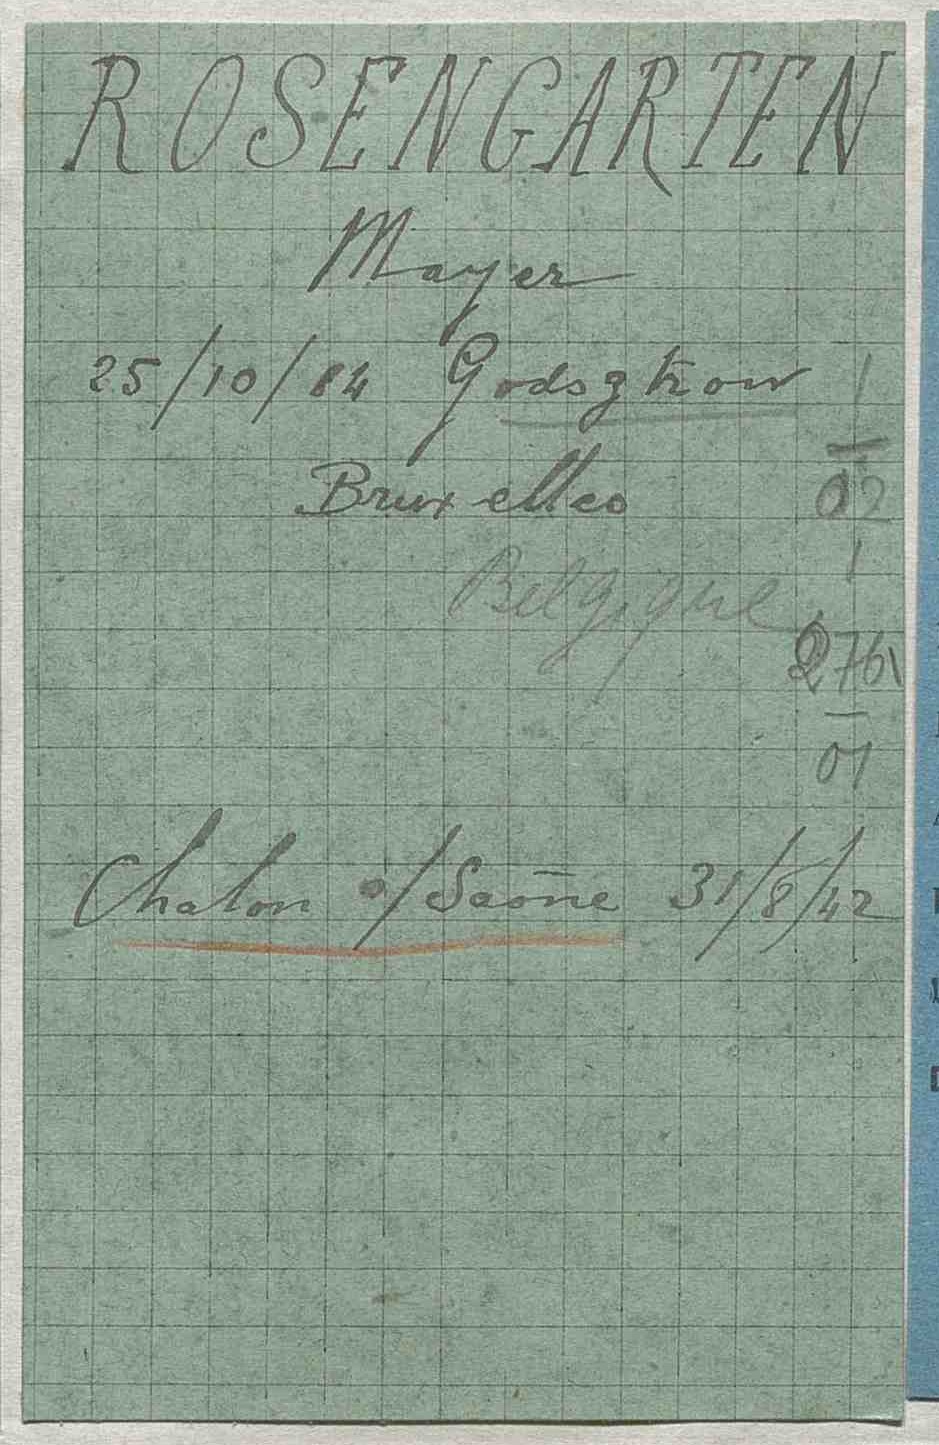 ROSENGARTEN
Mayer
25/10/84 Godsgkow 1
Bruxelles 02
1
Belgique
2761
01
Chalon s/Saône 31/8/42